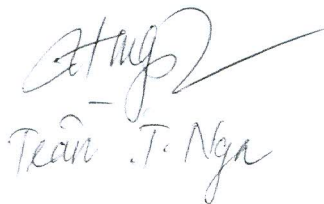 Trần .T. Nga